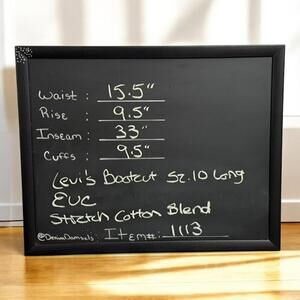 Waist : 15.5"
Rise : 9.5"
Inseam : 33"
Cuffs : 9.5"
Levi's Bootcut Sz.10 Long
EUC
Stretch Cotton Blend
@DenimDamsels: Item#: 1113